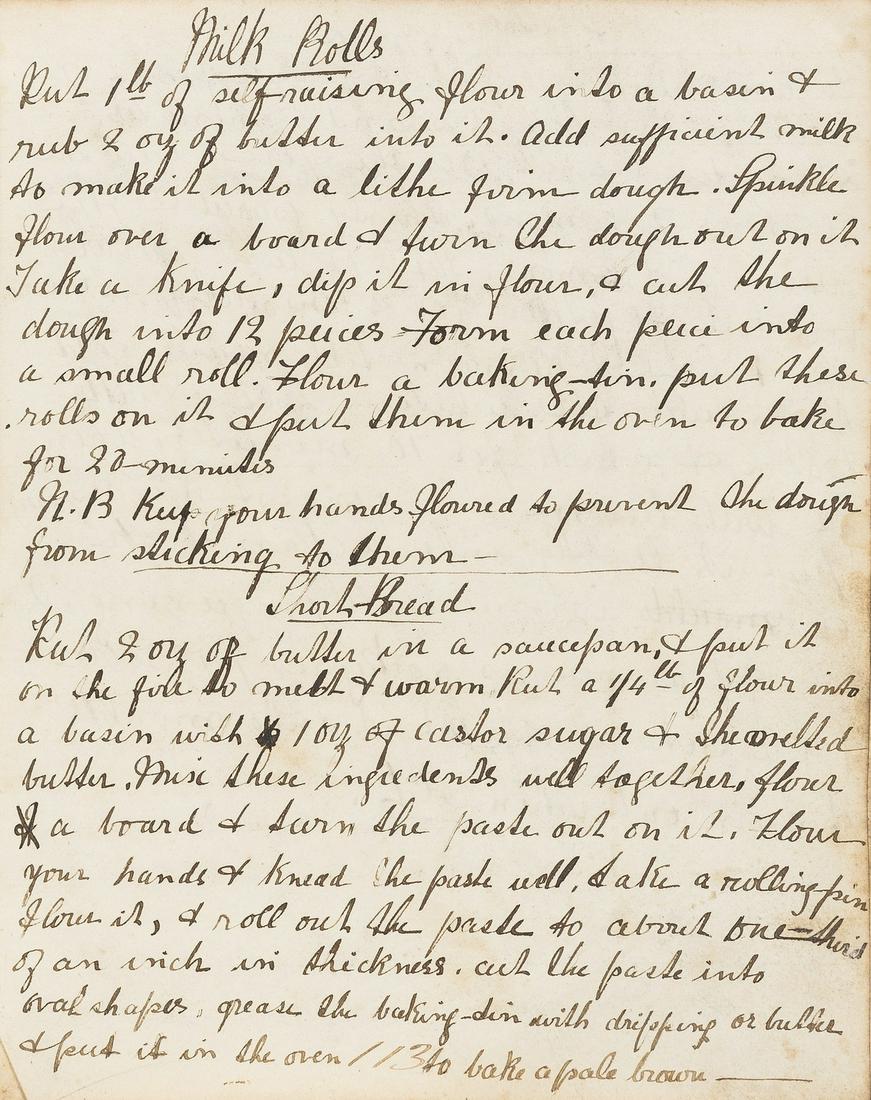 Milk Rolls
Put 1lb of self raising flour into a basin &
rub 2 oz of butter into it. Add sufficient milk
to make it into a lithe firm dough. Spinkle
flour over a board & turn the dough out on it
Take a knife, dip it in flour, & cut the
dough into 12 peices Form each peice into
a small roll. Flour a baking-tin. put these
rolls on it & put them in the oven to bake
for 20 minutes
N.B Keep your hands floured to prevent the dough
from sticking to them —
Short-Bread
Put 2 oz of butter in a saucepan, & put it
on the fire to melt & warm Put a 1/4 lb of flour into
a basin with 1 oz of castor sugar & the melted
butter. Mix these ingredents well together, flour
a board & turn the paste out on it. Flour
your hands & knead the paste well, take a rolling pin
flour it, & roll out the paste to about one-third
of an inch in thickness. cut the paste into
oval shapes, grease the baking-tin with dripping or butter
& put it in the oven 113 to bake a pale brown —